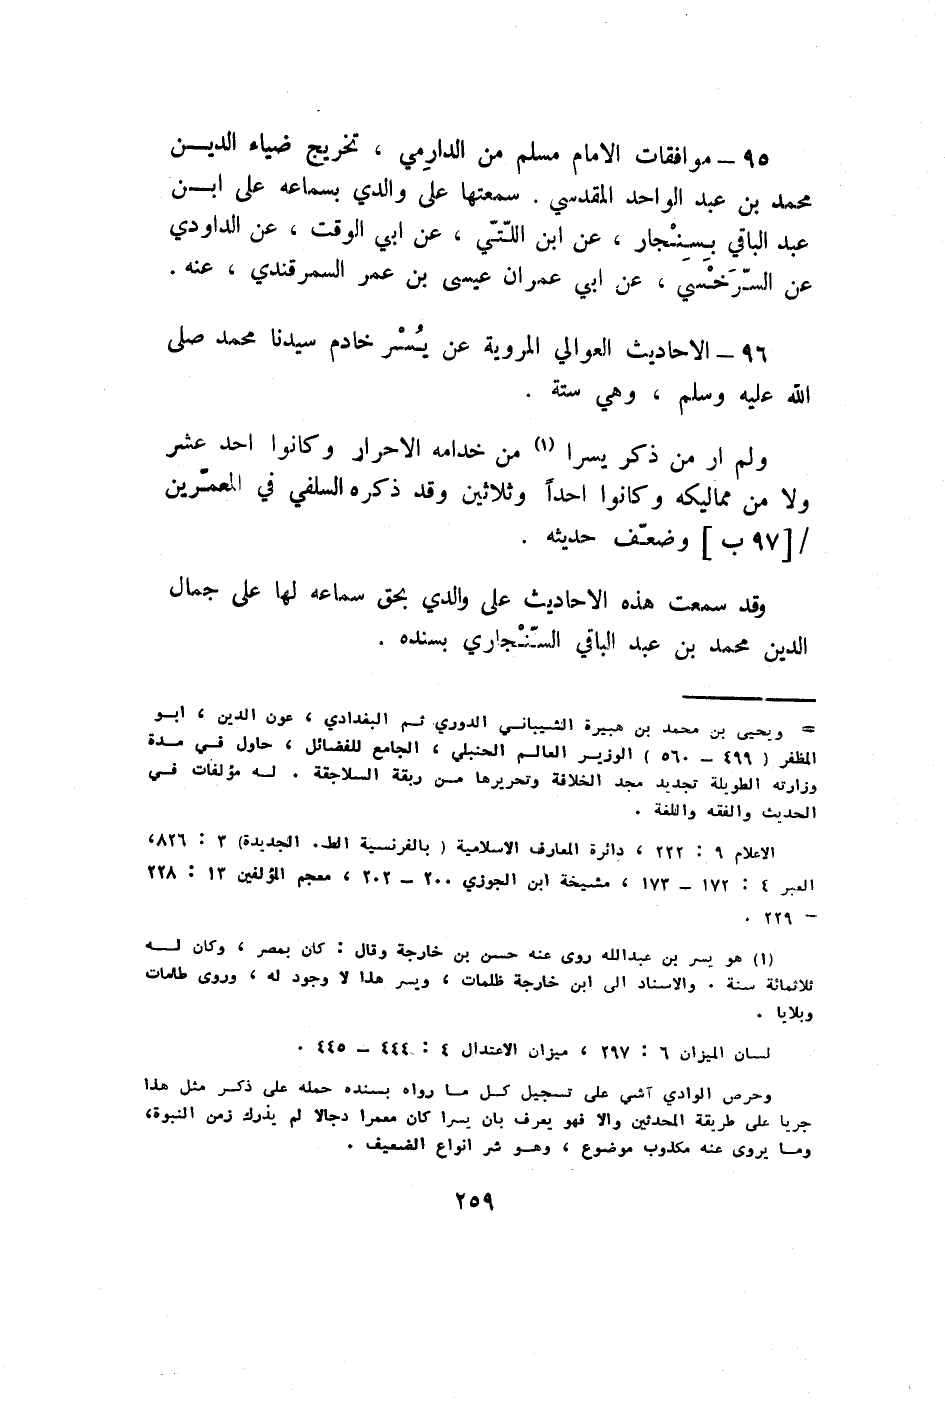 ٩٥ ــ موافقات الامام مسلم من الدارِمي ، تخريج ضياء الديـــن
محمد بن عبد الواحد المقدسي . سمعتها على والدي بسماعه على ابـــن
عبد الباقي بِسِنْجار ، عن ابن اللَّتّي ، عن ابي الوقت ، عن الداودي
عن السَّرَخْسي ، عن ابي عمران عيسى بن عمر السمرقندي ، عنه .
٩٦ ــ الاحاديث العوالي المروية عن يُسْر خادم سيدنا محمد صلى
الله عليه وسلم ، وهي ستة .
ولم ار من ذكر يسرا (١) من خدامه الاحرار وكانوا احد عشر
ولا من مماليكه وكانوا احداً وثلاثين وقد ذكره السلفي في المعمّرين
/[٩٧ ب] وضعّف حديثه .
وقد سمعت هذه الاحاديث على والدي بحق سماعه لها على جمال
الدين محمد بن عبد الباقي السِّنْجاري بسنده .
= ويحيى بن محمد بن هبيرة الشيباني الدوري ثم البغدادي ، عون الدين ، ابـو
المظفر ( ٤٩٩ ــ ٥٦٠ ) الوزيـر العالم الحنبلي ، الجامع للفضائل ، حاول فـي مـدة
وزارته الطويلة تجديد مجد الخلافة وتحريرها مـن ربقة السلاجقة . لـه مؤلفات فـي
الحديث والفقه واللغة .
الاعلام ٩ : ٢٢٢ ، دائرة المعارف الاسلامية ( بالفرنسية الط. الجديدة) ٣ : ٨٢٦،
العبر ٤ : ١٧٢ ــ ١٧٣ ، مشيخة ابن الجوزي ٢٠٠ ــ ٢٠٢ ، معجم المؤلفين ١٣ : ٢٢٨
ــ ٢٢٩ .
(١) هو يسر بن عبدالله روى عنه حسن بن خارجة وقال : كان بمصر ، وكان لــه
ثلاثمائة سنة . والاسناد الى ابن خارجة ظلمات ، ويسر هذا لا وجود له ، وروى طامات
وبلايا .
لسان الميزان ٦ : ٢٩٧ ، ميزان الاعتدال ٤ : ٤٤٤ ــ ٤٤٥ .
وحرص الوادي آشي على تسجيل كـل مـا رواه بسنده حمله على ذكـر مثل هذا
جريا على طريقة المحدثين والا فهو يعرف بان يسرا كان معمرا دجالا لم يدرك زمن النبوة،
ومـا يروى عنه مكذوب موضوع ، وهـو شر انواع الضعيف .
٢٥٩